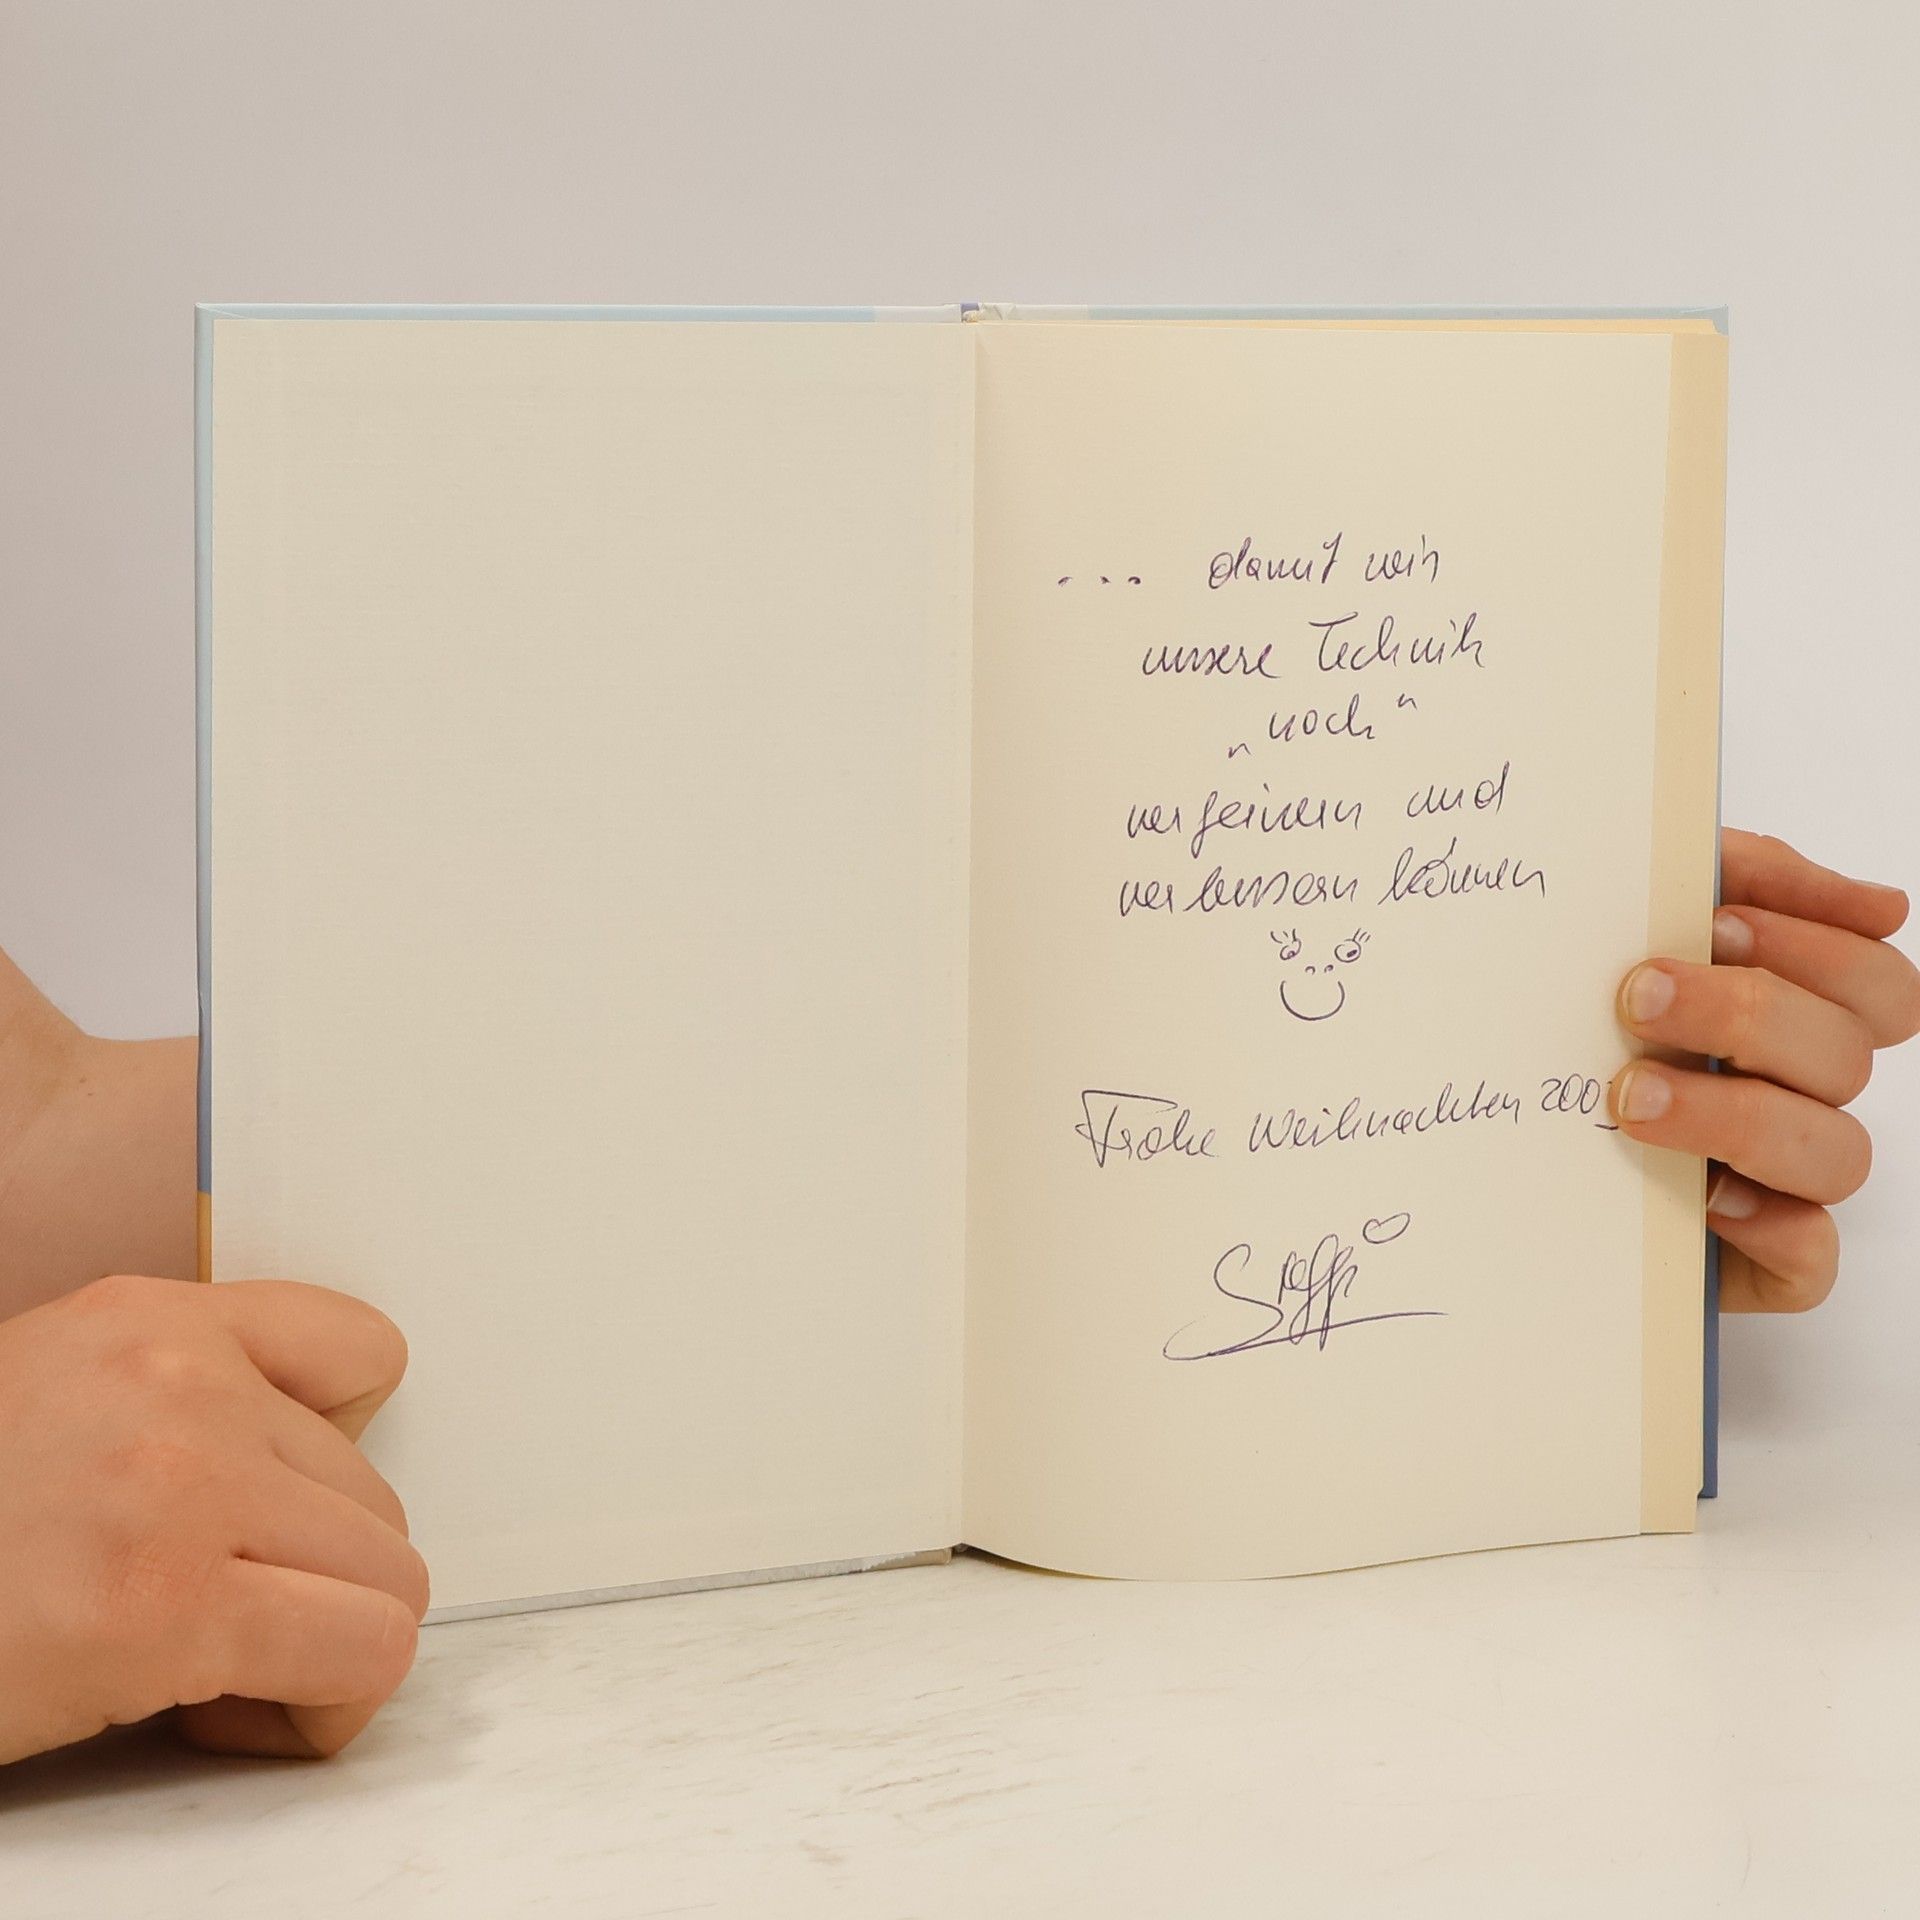 ... damit wir
unsere Technik
„noch“
verfeinern und
verbessern können
Frohe Weihnachten 200
Steffi